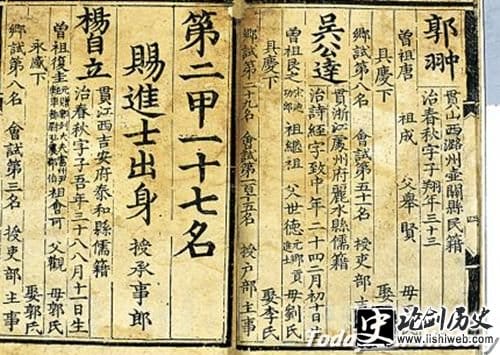 郭翀
貫山西潞州壺關縣民籍
治春秋字子翔年三十三
曾祖唐 祖成 父舉賢
具慶下 娶
鄉試第八名 會試第五十一名 授吏部主
吳公達
貫浙江處州府麗水縣儒籍
治詩經字致中年二十四二月初十日
曾祖艮之宋迪功郎 祖繼祖 父世德元鄉貢進士 母劉氏
具慶下 娶李氏
鄉試第二十九名 會試第一百十五名 授户部主事
第二甲一十七名
賜進士出身 授承事郎
楊自立
貫江西吉安府泰和縣儒籍
治春秋字子吾年三十八八月十一日生
曾祖復圭 祖會可 父觀 母郭氏
永感下 娶郭氏
鄉試第八名 會試第三名 授吏部主事
史 论剑历史
www.lishiweb.com